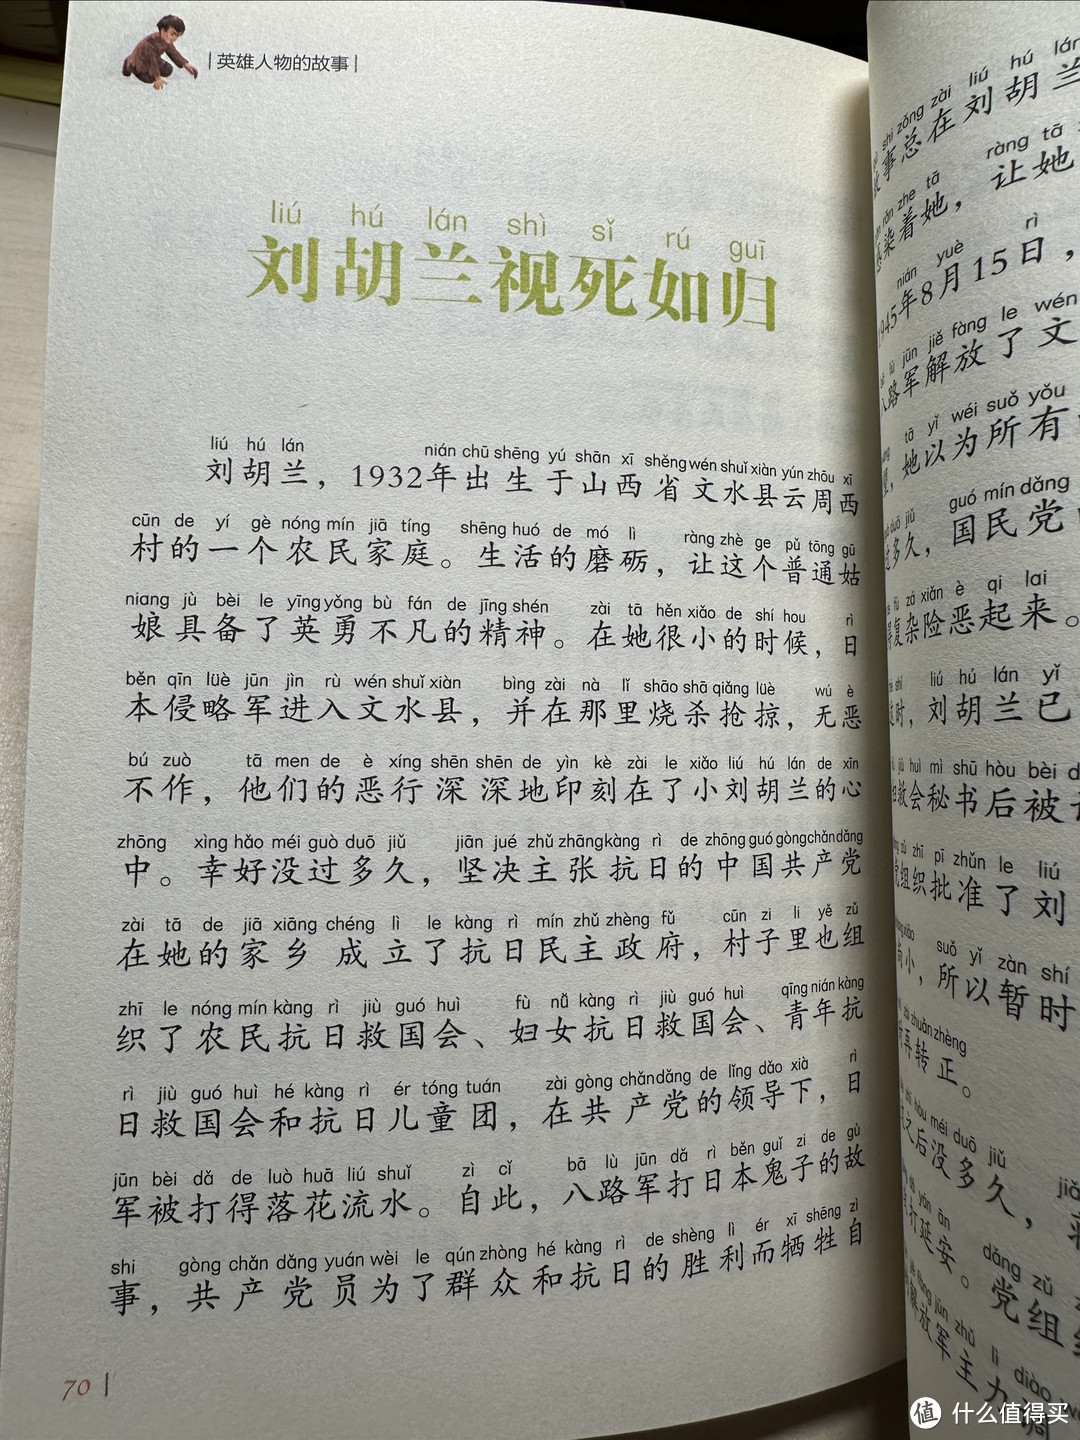 |英雄人物的故事|
liú hú lán shì sǐ rú guī
刘胡兰视死如归
liú hú lán nián chū shēng yú shān xī shěng wén shuǐ xiàn yún zhōu xī
刘胡兰，1932年出生于山西省文水县云周西
cūn de yí gè nóng mín jiā tíng shēng huó de mó lì ràng zhè ge pǔ tōng gū
村的一个农民家庭。生活的磨砺，让这个普通姑
niang jù bèi le yīng yǒng bù fán de jīng shén zài tā hěn xiǎo de shí hou rì
娘具备了英勇不凡的精神。在她很小的时候，日
běn qīn lüè jūn jìn rù wén shuǐ xiàn bìng zài nà lǐ shāo shā qiǎng lüè wú è
本侵略军进入文水县，并在那里烧杀抢掠，无恶
bú zuò tā men de è xíng shēn shēn de yìn kè zài le xiǎo liú hú lán de xīn
不作，他们的恶行深深地印刻在了小刘胡兰的心
zhōng xìng hǎo méi guò duō jiǔ jiān jué zhǔ zhāng kàng rì de zhōng guó gòng chǎn dǎng
中。幸好没过多久，坚决主张抗日的中国共产党
zài tā de jiā xiāng chéng lì le kàng rì mín zhǔ zhèng fǔ cūn zi li yě zǔ
在她的家乡成立了抗日民主政府，村子里也组
zhī le nóng mín kàng rì jiù guó huì fù nǚ kàng rì jiù guó huì qīng nián kàng
织了农民抗日救国会、妇女抗日救国会、青年抗
rì jiù guó huì hé kàng rì ér tóng tuán zài gòng chǎn dǎng de lǐng dǎo xià rì
日救国会和抗日儿童团，在共产党的领导下，日
jūn bèi dǎ de luò huā liú shuǐ zì cǐ bā lù jūn dǎ rì běn guǐ zi de gù
军被打得落花流水。自此，八路军打日本鬼子的故
shi gòng chǎn dǎng yuán wèi le qún zhòng hé kàng rì de shèng lì ér xī shēng zì
事，共产党员为了群众和抗日的胜利而牺牲自
70
shi zǒng zài liú hú lán
事总在刘胡兰
rǎn zhe tā ràng tā
染着她，让她
nián yuè rì
1945年8月15日，
lù jūn jiě fàng le wén
八路军解放了文
tā yǐ wéi suǒ yǒu
她以为所有
duō jiǔ guó mín dǎng
多久，国民党
fù zá xiǎn è qi lai
复杂险恶起来。
liú hú lán yǐ
时，刘胡兰已
jiù huì mì shū hòu bèi
救会秘书后被
zǔ zhī pī zhǔn le liú
党组织批准了刘
suǒ yǐ zàn shí
小，所以暂时
zài zhuǎn zhèng
再转正。
hòu méi duō jiǔ
之后没多久，
yán ān dǎng zǔ
打延安。党组
fàng jūn zhǔ lì diào
解放军主力调
值 什么值得买